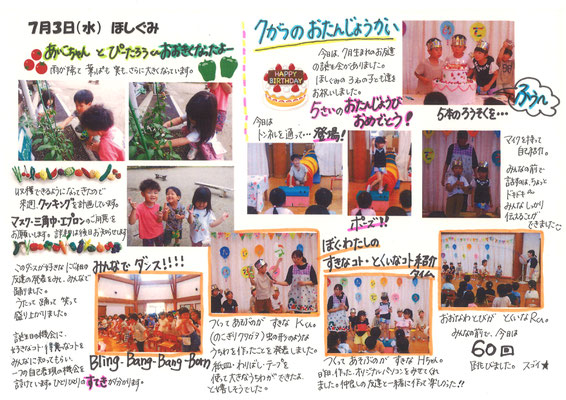 7月3日(水) ほしぐみ
あいこちゃん と ぴーたろうくん おおきくなったよー
雨が降って 葉っぱも 実も、さらに大きくなっています。
収穫できるようになってきたので
来週 クッキングを計画しています。
マスク・三角巾・エプロンのご用意を
お願いします。詳細は後日お知らせします
みんなで ダンス!!!!
友達の発表をみて、みんなで
踊りました。
うたって 踊って 笑って
盛り上がりました。
誕生日の機会に、
みんなに知ってもらい、
一つの自己表現の機会を
設けています。ひとりひとりのすてきが分かります。
Bling-Bang-Bang-Born
7がつの おたんじょうかい
今日は、7月生まれのお友達
の誕生会がありました。
ほしぐみの 3名の子ども達を
お祝いしました。
HAPPY BIRTHDAY
5さいの おたんじょうび
おめでとう!
今日は
トンネルを通って… 登場!
ポーズ!!
5本のろうそくを…
ふぅ〜
マイクを持って
自己紹介。
みんなの前で
話すのは、ちょっと
ドキドキ
みんなしっかり
伝えることが
できました
ぼくわたしの
すきなコト・とくいなコト紹介
タイム
つくって あそぶのが すきな Kくん。
(のこぎりクワガタ) 虫の形のような
うちわを作ったことを 発表しました。
紙皿・わりばし・テープを
使って 大きなうちわができたよ
と嬉しそうでした。
つくって あそぶのが すきな Hちゃん。
昨日、作った、オリジナルパソコンをみせてくれ
ました。仲良しの友達と一緒に作って楽しかった!!
おおなわとびが とくいな Rくん。
みんなの前で、今日は
60回
跳びました。スゴイ★